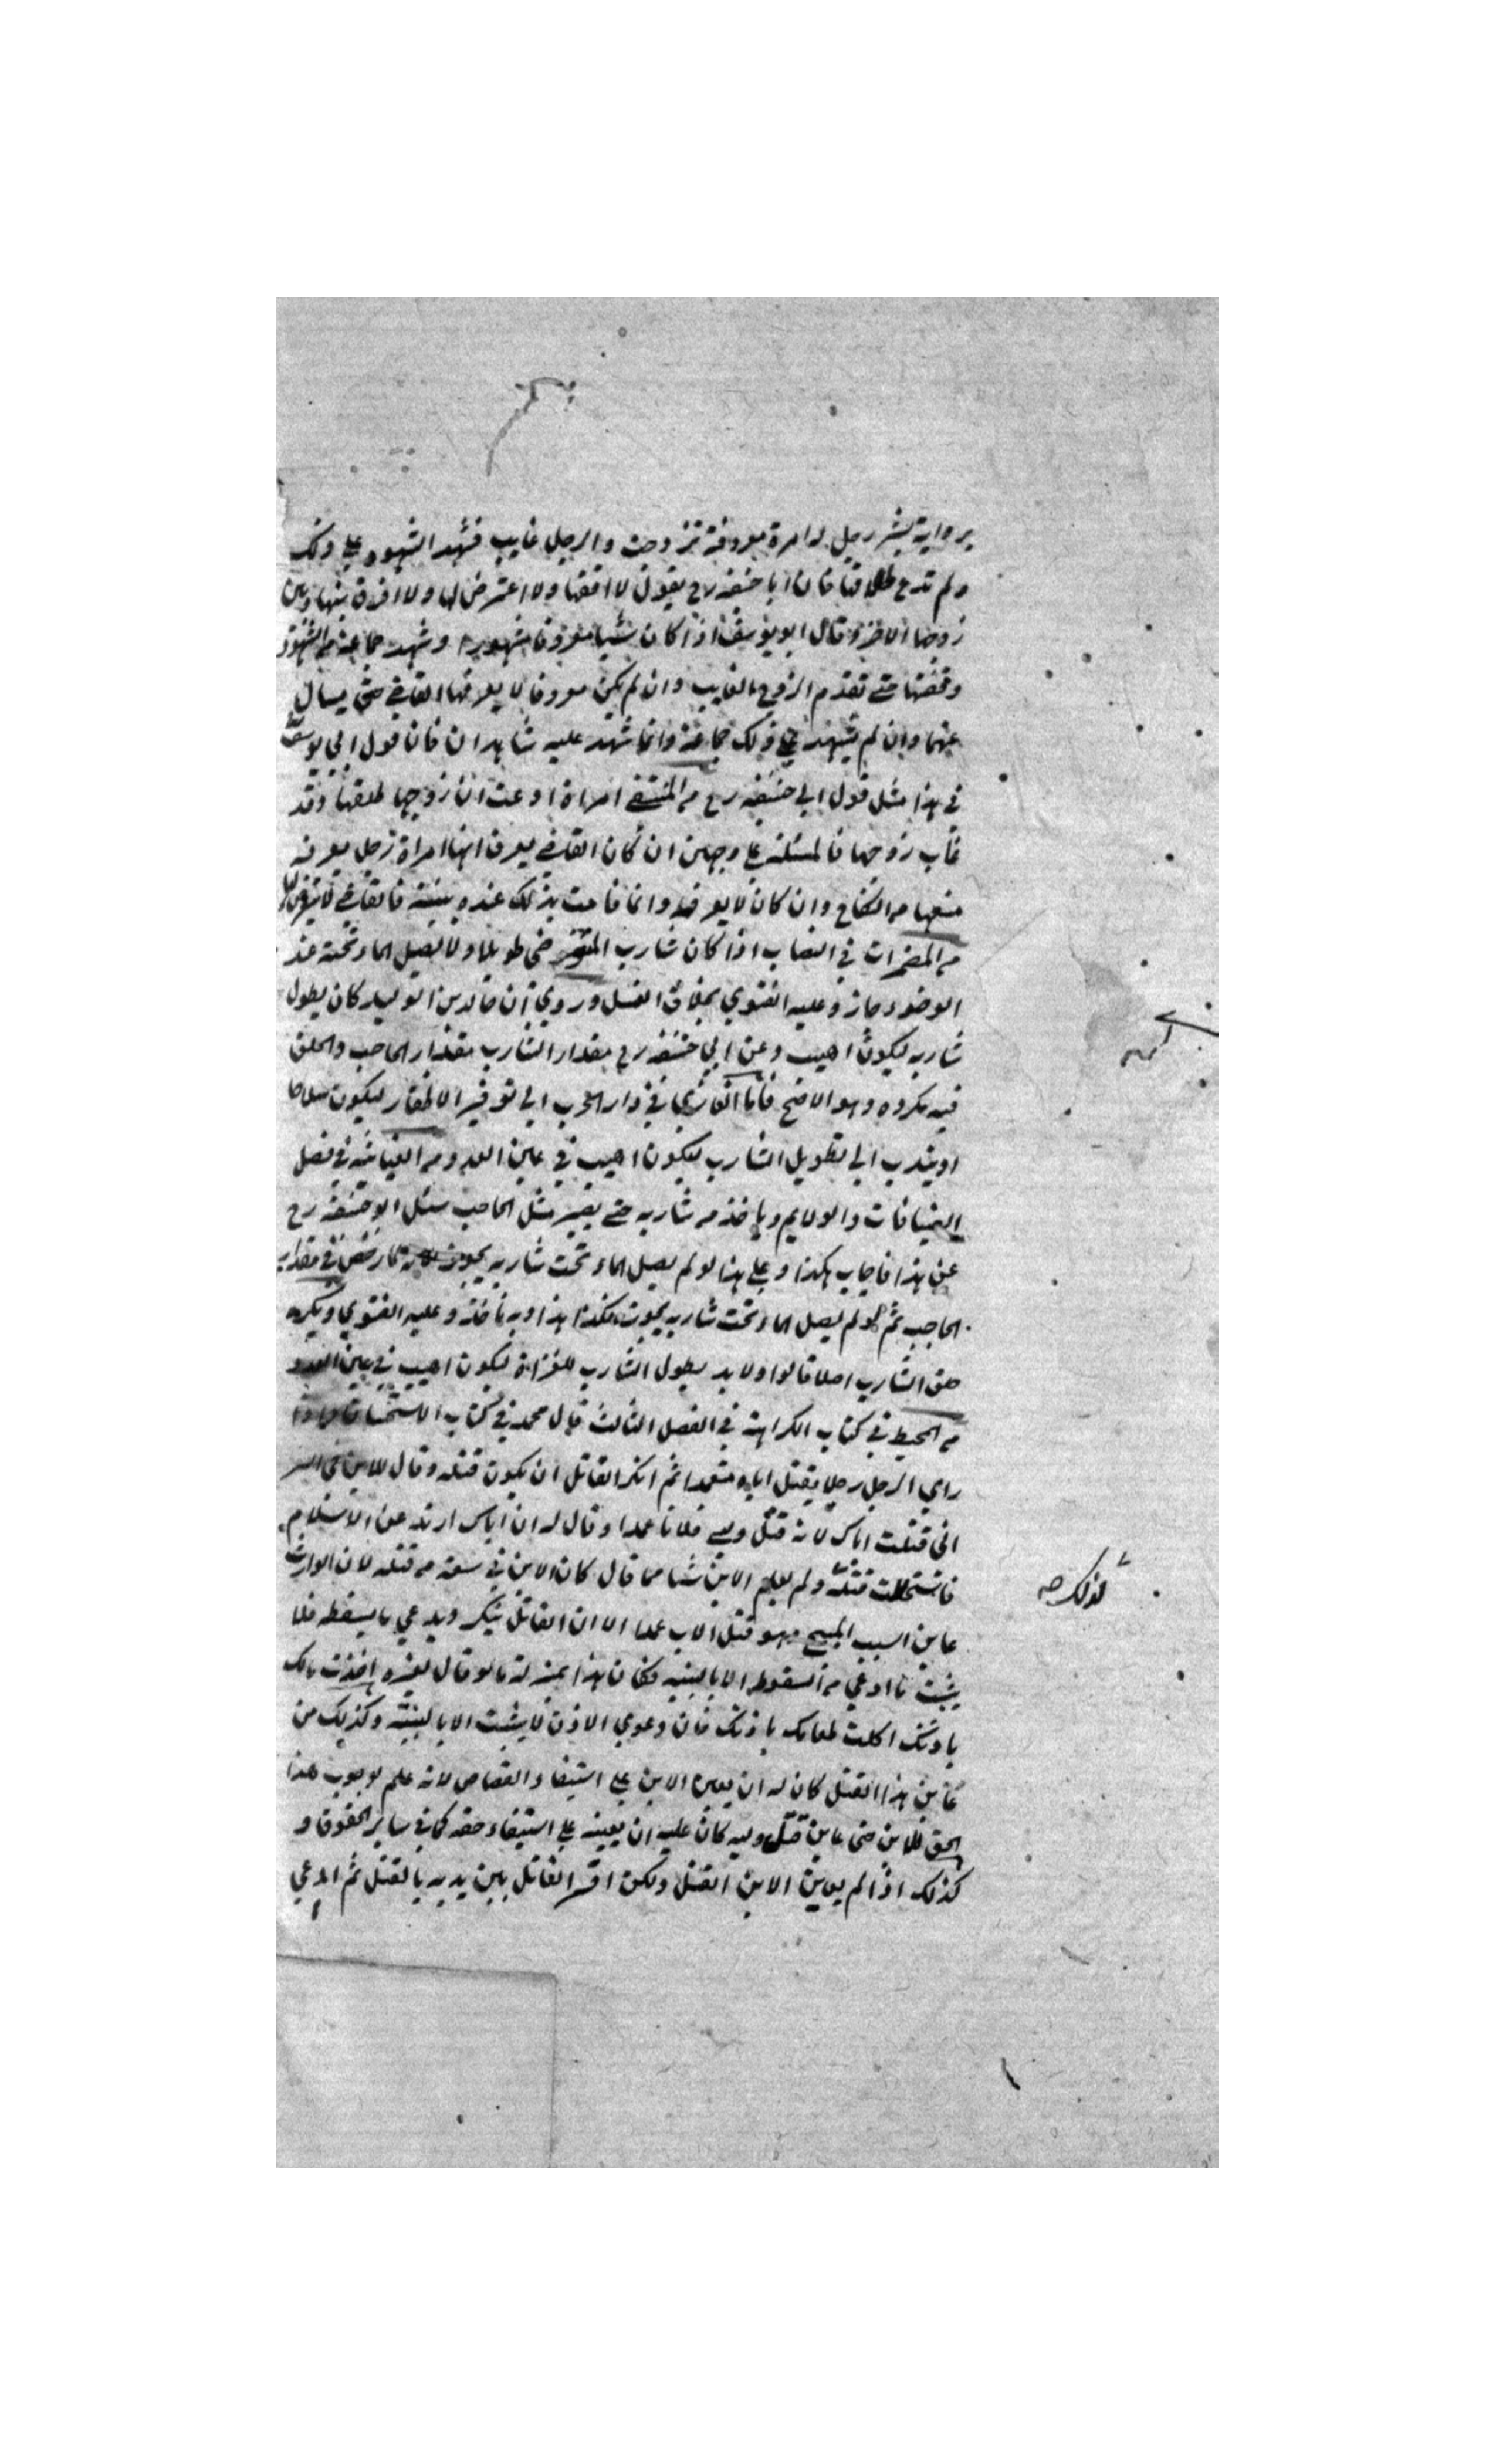 برواية بشر رجل له امرة معروفة تزوجت والرجل غايب فشهد الشهود علي ذلك
ولم تدع طلاقها فان ابا حنيفه رح يقول لا اقفها ولا اعترض لها ولا افرق بينها وبين
زوجها الاخر وقال ابو يوسف اذا كان شيا معروفا مشهورا وشهد جماعة من الشهود
وقفتها حتي تقدم الزوج الغايب وان لم يكن معروفا لا يعرفها القاضي حتي يسال
عنها وان لم يشهد علي ذلك جماعة وانما شهد عليه شاهدان فان قول ابي يوسف
في هذا مثل قول ابي حنيفه رح من المنتقي امراة ادعت ان زوجها طلقها وقد
غاب زوجها فالمسئلة علي وجهين ان كان القاضي يعرف انها امراة رجل يعرفه
منعها من النكاح وان كان لا يعرفه وانما قامت بذلك عنده بينة فالقاضي لا يتعرض لها
من المضمرات في النصاب اذا كان شارب المتوضي طويلا ولا يصل الماء تحته عند
الوضوء جاز وعليه الفتوي بخلاف الغسل وروي ان خالد بن الوليد كان يطول
شاربه ليكون اهيب وعن ابي حنيفه رح مقدار الشارب مقدار الحاجب والحلق
فيه مكروه وهو الاصح فاما الغازي في دار الحرب الي توفير الاظفار ليكون سلاحا
او يندب الي تطويل الشارب ليكون اهيب في عين العدو من الغياثيه في فصل
الضيافات والولايم وياخذ من شاربه حتي يصير مثل الحاجب سئل ابو حنيفه رح
عن هذا فاجاب هكذا وعلي هذا لو لم يصل الماء تحت شاربه يجوز لما رخص في مقدار
الحاجب ثم لو لم يصل الماء تحت شاربه يجوز فكذا هذا وبه ناخذ وعليه الفتوي ويكره
حلق الشارب اصلا قالوا ولا بد يطول الشارب للغزاة ليكون اهيب في عين العدو
من المحيط في كتاب الكراهة في الفصل الثالث قال محمد في كتاب الاستحسان واذا
راي الرجل رجلا يقتل اباه متعمدا ثم انكر القاتل ان يكون قتله وقال للابن في السر
اني قتلت اباك لانه قتل وليي فلانا عمدا وقال له ان اباك ارتد عن الاسلام
فاستحللت قتله ولم يعلم الابن شيا مما قال كان الابن في سعة من قتله لان الوارث
عاين السبب المبيح وهو قتل الاب عمدا الا ان القاتل ينكر ويدعي ما يسقطه فلا
يثبت ما ادعي من السقوط الا بالبينه فكان هذا بمنزلة ما لو قال لغيره اخذت مالك
باذنك اكلت طعامك باذنك فان دعوي الاذن لا يثبت الا بالبينة وكذلك من
عاين هذا القتل كان له ان يعين الابن علي استيفاء القصاص لانه علم بوجوب هذا
الحق للابن حتي عاين قتل وليه كان عليه ان يعينه علي استيفاء حقه كما في ساير الحقوق و
كذلك اذا لم يعاين الابن القتل ولكن اقر القاتل بين يديه بالقتل ثم ادعي
كذلك صح